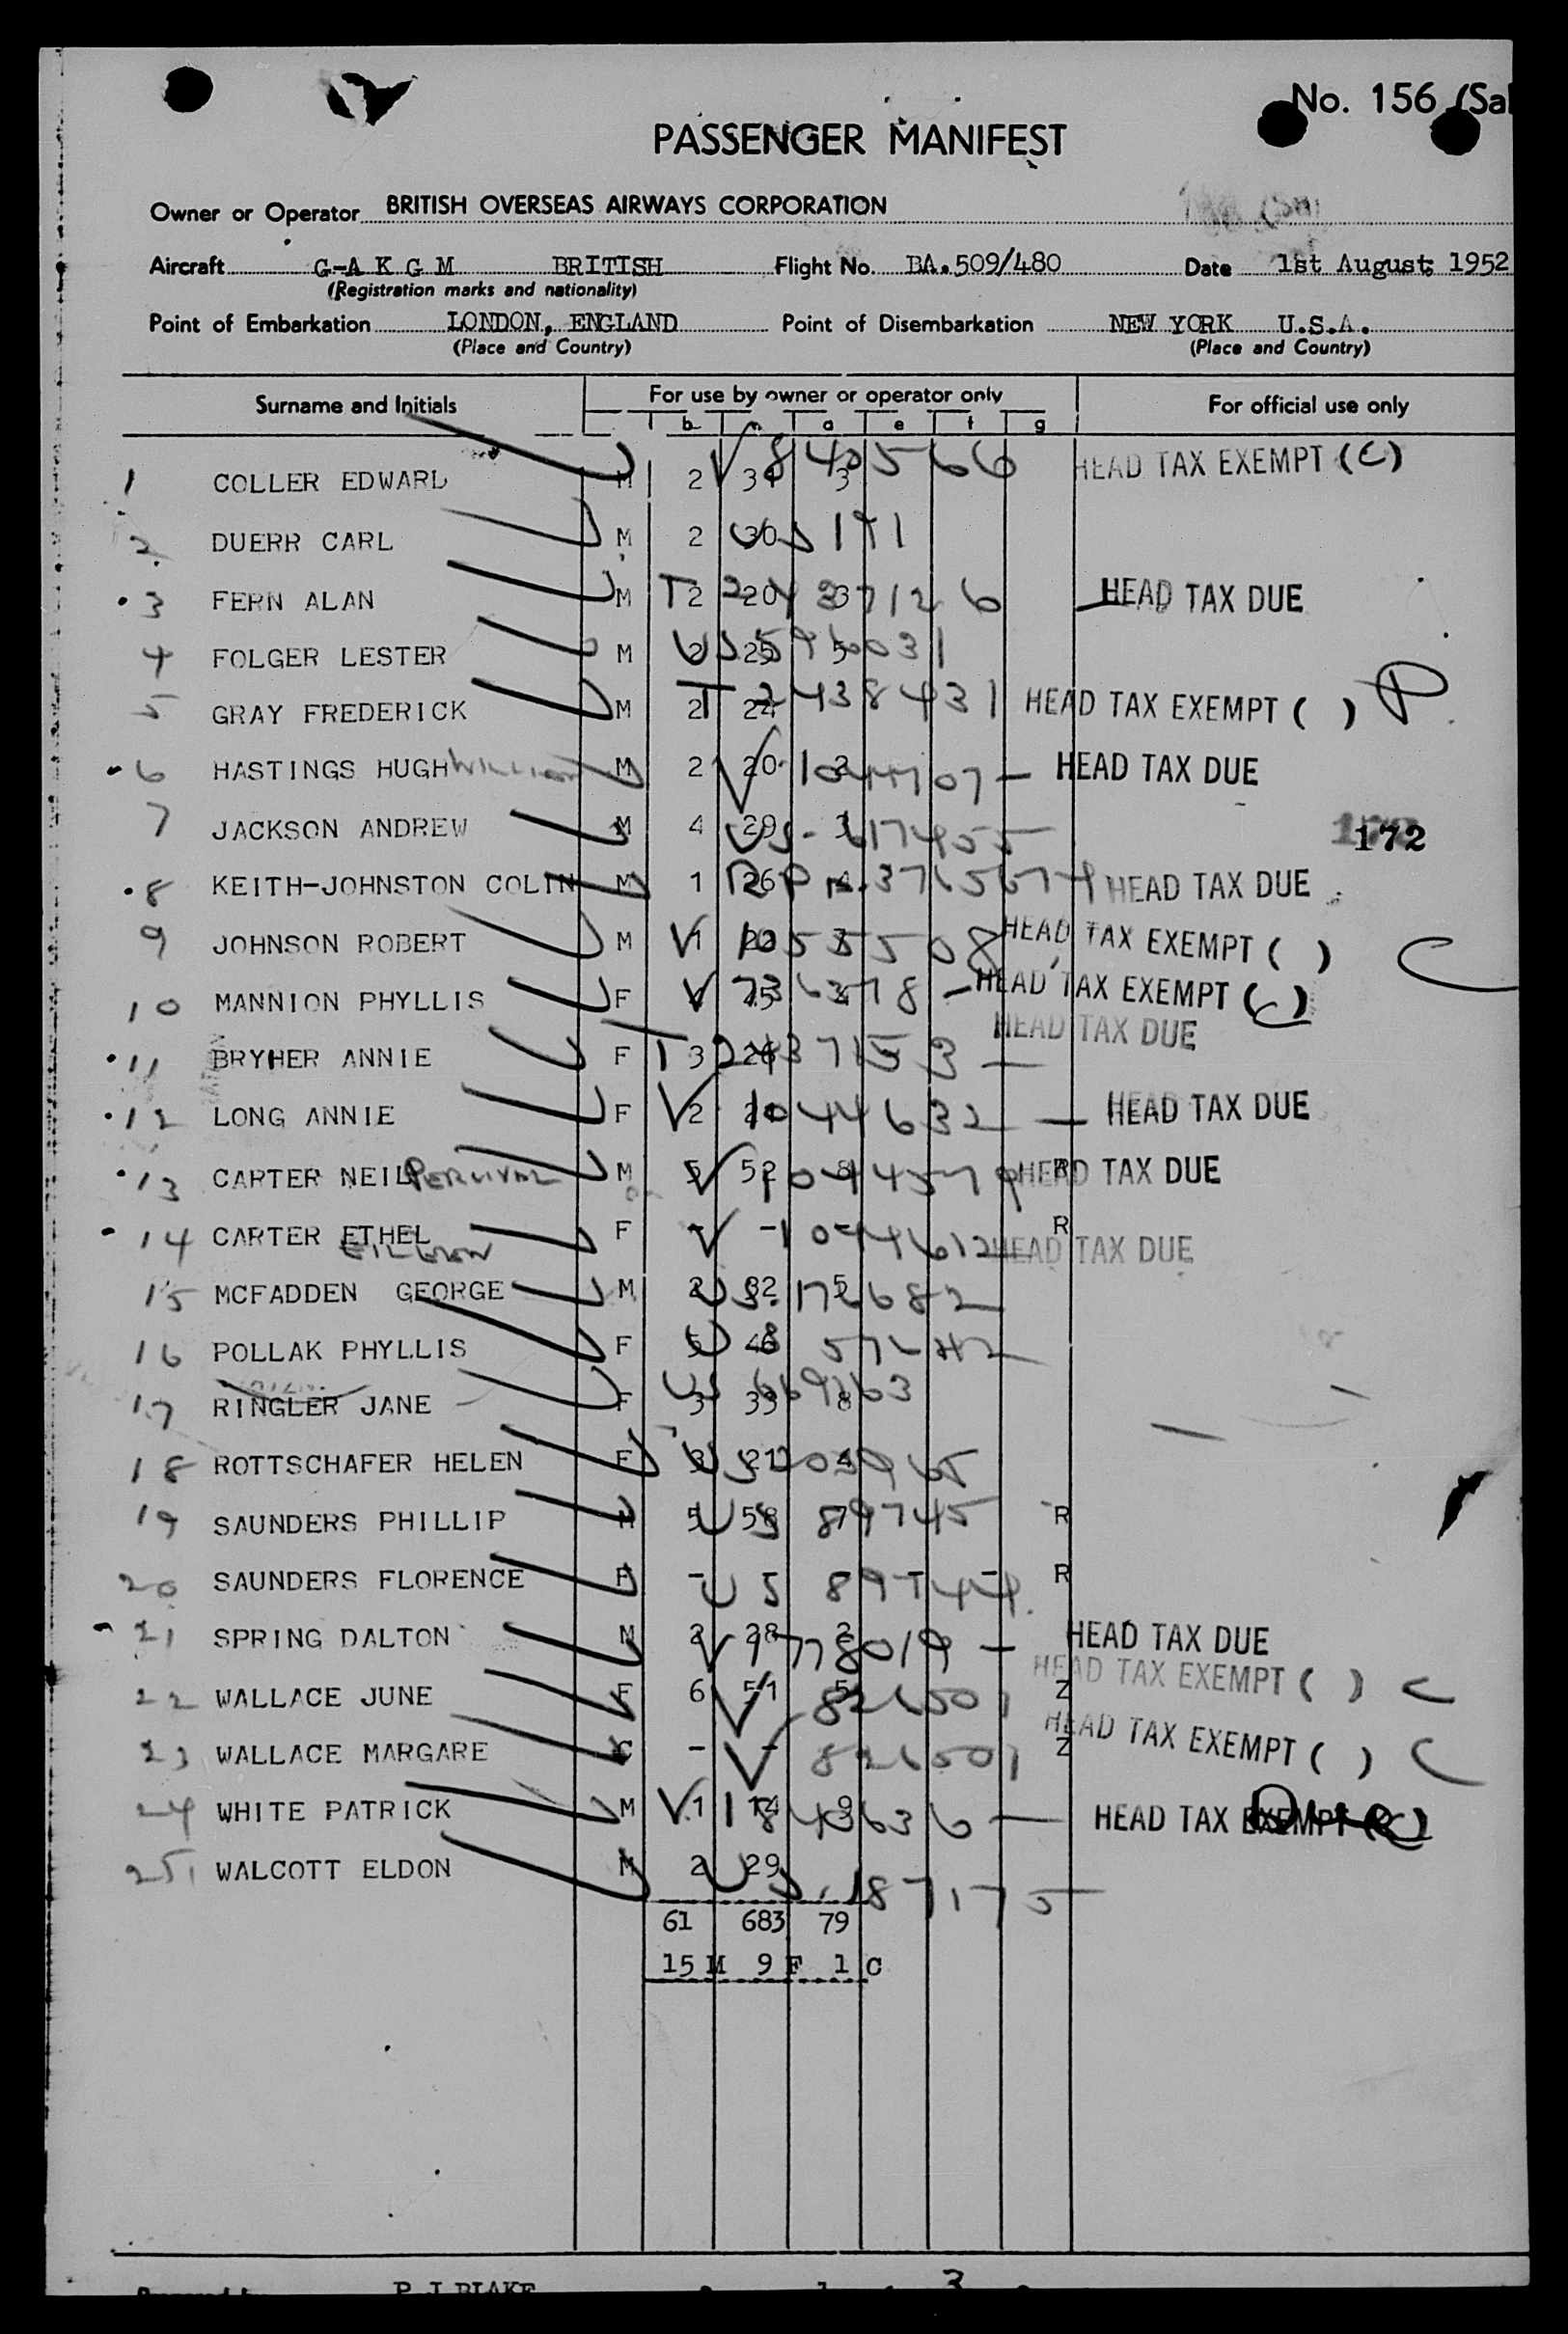 No. 156 (Sal
PASSENGER MANIFEST
Owner or Operator BRITISH OVERSEAS AIRWAYS CORPORATION
Aircraft G-A K G M BRITISH Flight No. BA.509/480 Date 1st August, 1952
(Registration marks and nationality)
Point of Embarkation LONDON, ENGLAND Point of Disembarkation NEW YORK U.S.A.
(Place and Country) (Place and Country)
Surname and Initials For use by owner or operator only For official use only
b e f g
1 COLLER EDWARD M 2 34 3 V 840566 HEAD TAX EXEMPT (C)
2 DUERR CARL M 2 30 US 171
3 FERN ALAN M 2 20 3 T 2437126 HEAD TAX DUE
4 FOLGER LESTER M 2 25 5 US 596031
5 GRAY FREDERICK M 2 24 T 2438431 HEAD TAX EXEMPT ( ) P
6 HASTINGS HUGH WILLIAM M 2 20 3 V 1044707 — HEAD TAX DUE
7 JACKSON ANDREW M 4 29 US - 617455
172
8 KEITH-JOHNSTON COLIN M 1 26 HEAD TAX DUE
9 JOHNSON ROBERT M 1 V 1055508 HEAD TAX EXEMPT ( ) C
10 MANNION PHYLLIS F V 736378 — HEAD TAX EXEMPT (C)
HEAD TAX DUE
11 BRYHER ANNIE F 3 T 2437153 —
12 LONG ANNIE F 2 V 1044632 — HEAD TAX DUE
13 CARTER NEIL PERCIVAL M 5 52 8 V 1044579 R HEAD TAX DUE
14 CARTER ETHEL F - - V 1044612 R HEAD TAX DUE
EILEEN
15 MCFADDEN GEORGE M 2 32 5 US. 172682
16 POLLAK PHYLLIS F 5 46 US 57642
17 RINGLER JANE F 3 39 8 US 669763
18 ROTTSCHAFER HELEN F 3 21 4 US 203965
19 SAUNDERS PHILLIP M 5 58 7 US 89745 R
20 SAUNDERS FLORENCE F - - - US 89744 R
21 SPRING DALTON M 2 28 2 V 1778019 — HEAD TAX DUE
22 WALLACE JUNE F 6 51 5 V 826501 Z HEAD TAX EXEMPT ( ) C
23 WALLACE MARGARE C - - V 826501 Z HEAD TAX EXEMPT ( ) C
24 WHITE PATRICK M 1 14 9 V 1843636 — HEAD TAX EXEMPT (C)
25 WALCOTT ELDON M 2 29 US. 187175
61 683 79
15 M 9 F 1 C
P J BLAKE
3